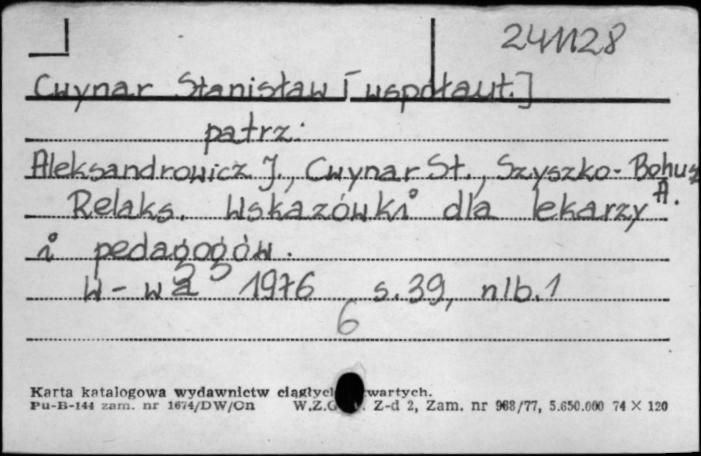 241128
Cwynar Stanisław [współaut.]
patrz:
Aleksandrowicz J., Cwynar St., Szyszko-Bohusz A.
Relaks. Wskazówki dla lekarzy
i pedagogów.
W-wa 1976 s.39, nlb.1
6
Karta katalogowa wydawnictw ciągłyc wartych.
Pu-B-144 zam. nr 1674/DW/Gn W.Z.G Z-d 2, Zam. nr 968/77, 5.650.000 74 × 120